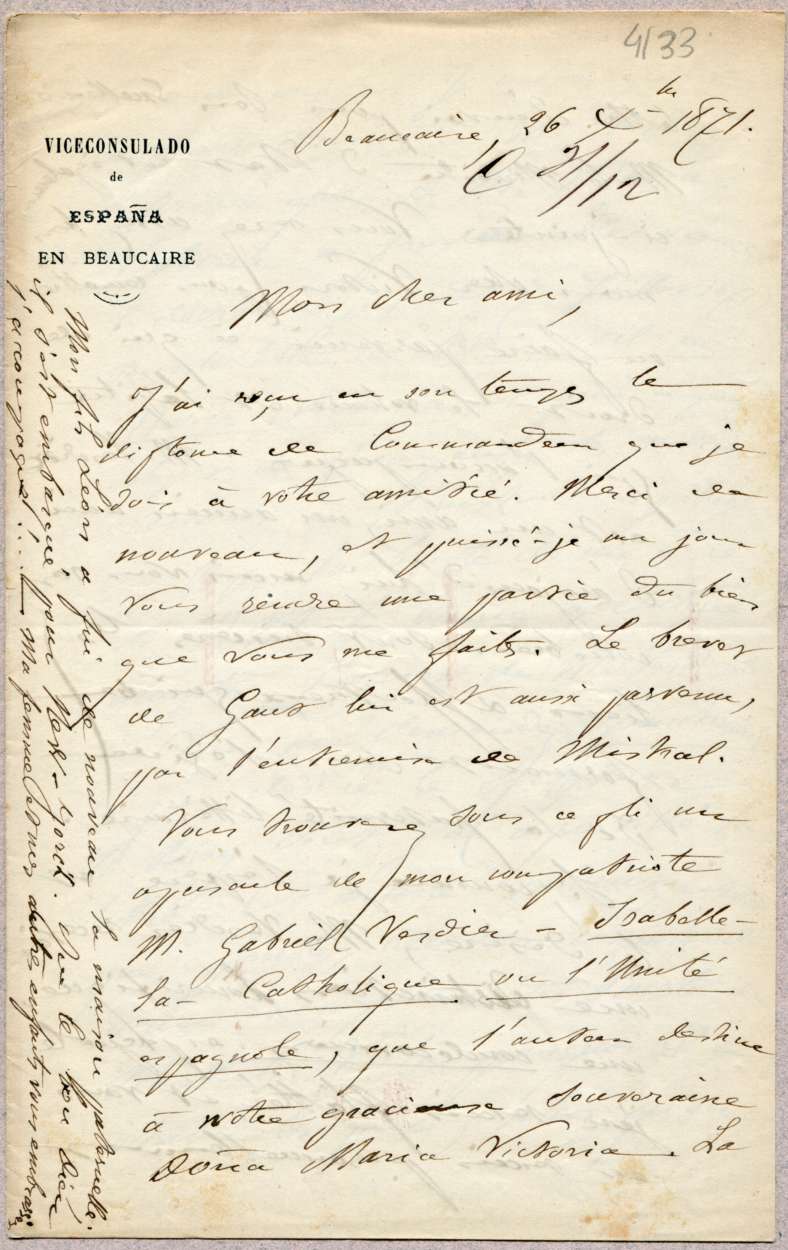 4133
VICECONSULADO
de
ESPAÑA
EN BEAUCAIRE
Beaucaire, 26 Xbre 1871.
C 31/12
Mon cher ami,
J'ai reçu en son temps le
diplome de Commandeur que je
dois à votre amitié. Merci de
nouveau, et puissé-je un jour
vous rendre une partie du bien
que vous me faites. Le brevet
de Gaut lui est aussi parvenu,
par l'entremise de Mistral.
Vous trouverez sous ce pli un
opuscule de mon compatriote
M. Gabriel Verdier – Isabelle-
la-Catholique ou l'Unité
espagnole, que l'auteur destine
à notre gracieuse souveraine
Doña Maria Victoria. La
Mon fils Léon a fui de nouveau la maison paternelle.
il s'est embarqué pour New-Yorck. Que le bon Dieu
l'accompagne!... – Ma femme et mes autres enfants vous embrasse